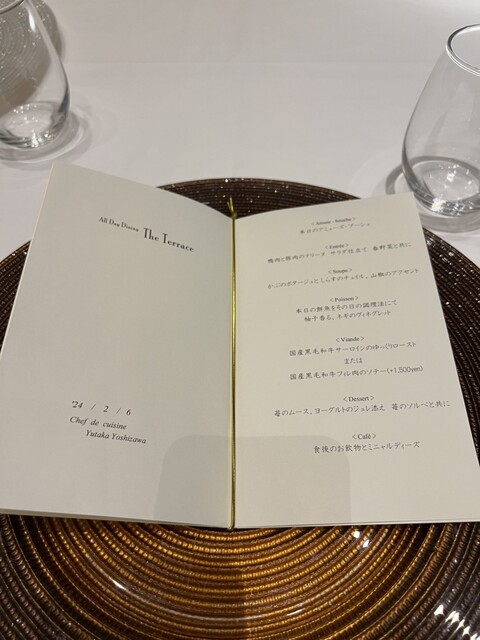 All Day Dining The Terrace
'24 / 2 / 6
Chef de cuisine
Yutaka Yoshizawa
<Amuse - bouche>
本日のアミューズ・ブーシュ
<Entrée>
鴨肉と豚肉のテリーヌ サラダ仕立て 春野菜と共に
<Soupe>
かぶのポタージュと しらすのチュイル、山椒のアクセント
<Poisson>
本日の鮮魚をその日の調理法にて
柚子香る、ネギのヴィネグレット
<Viande>
国産黒毛和牛サーロインのゆっくりロースト
または
国産黒毛和牛フィレ肉のソテー(+1,500yen)
<Dessert>
苺のムース、ヨーグルトのジュレ添え 苺のソルベと共に
<Café>
食後のお飲物とミニャルディーズ